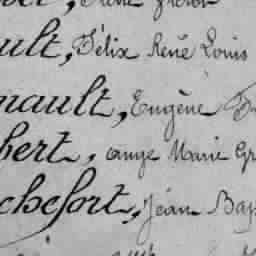 ult, Félix René Louis
nault, Eugène
bert, ange Marie
chefort, Jean Bap